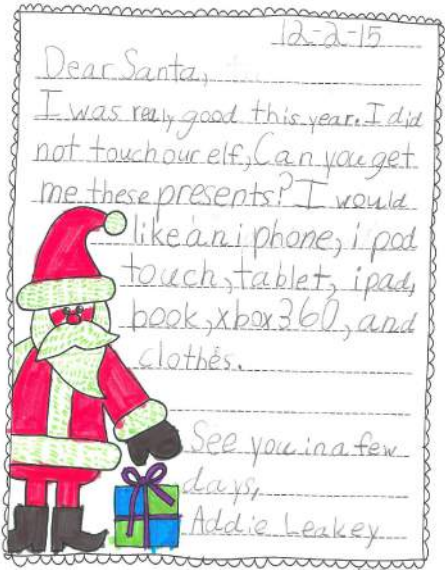 12-2-15
Dear Santa,
I was really good this year. I did
not touch our elf, Can you get
me these presents? I would
like an i phone, i pod
touch, tablet, ipad,
book, xbox 360, and
clothes.
See you in a few
days,
Addie Leakey